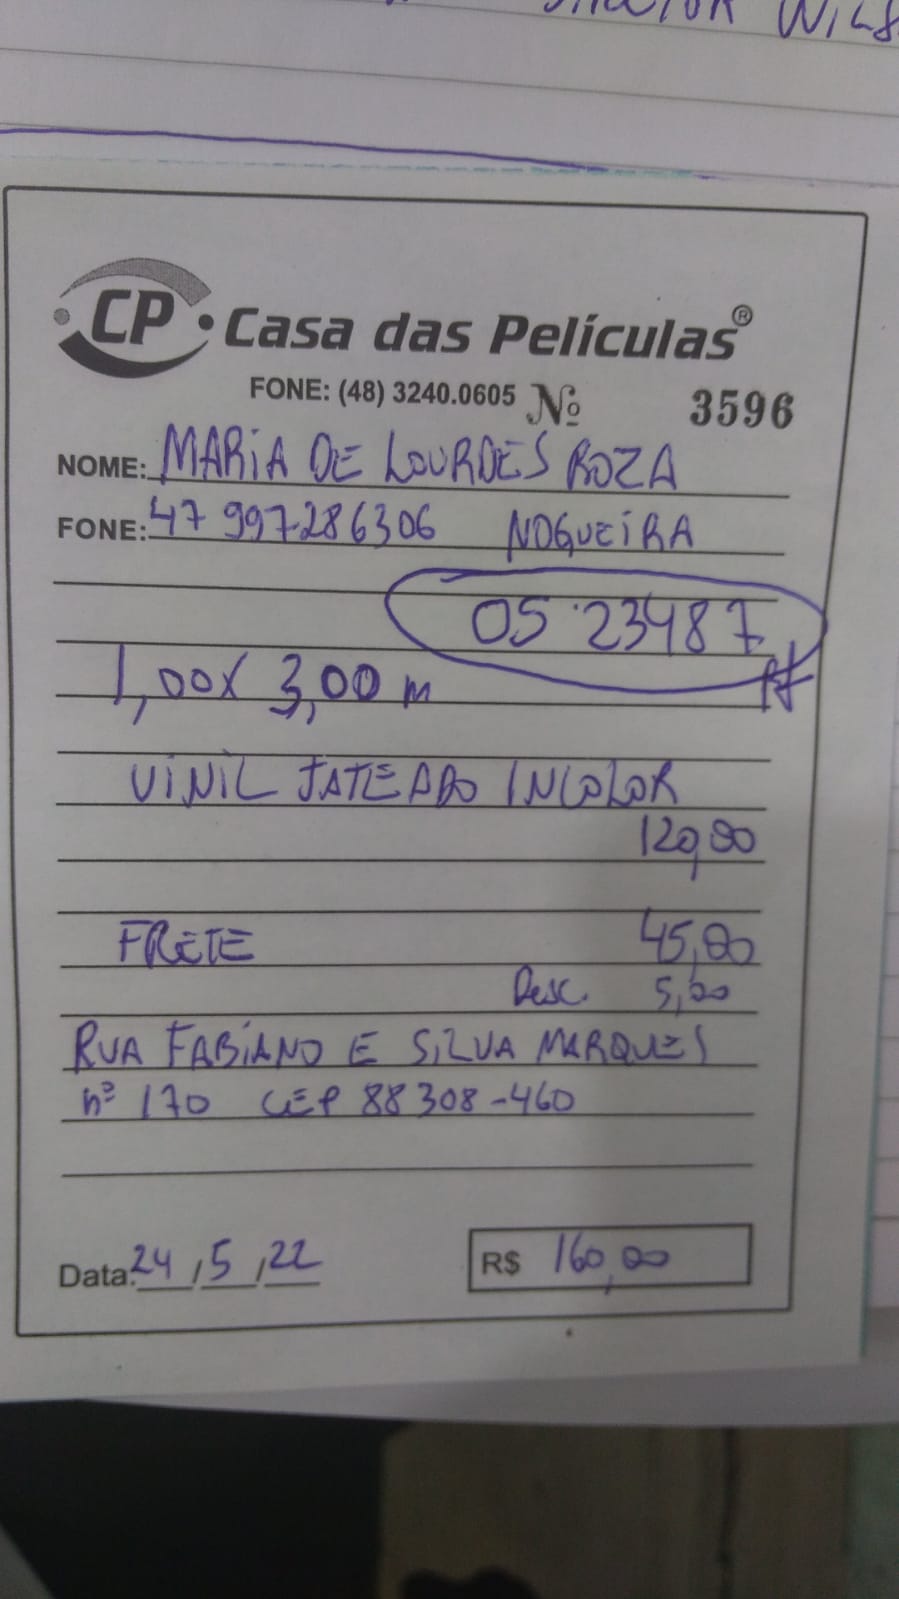 CP Casa das Películas®
FONE: (48) 3240.0605 Nº 3596
NOME: MARIA DE LOURDES ROZA
FONE: 47 997286306 NOGUEIRA
OS 23487
1,00X 3,00 m
VINIL JATEADO INCOLOR
120,00
FRETE 45,00
Desc. 5,00
RUA FABIANO E SILVA MARQUES
nº 170 CEP 88308-460
Data: 24/5/22 R$ 160,00